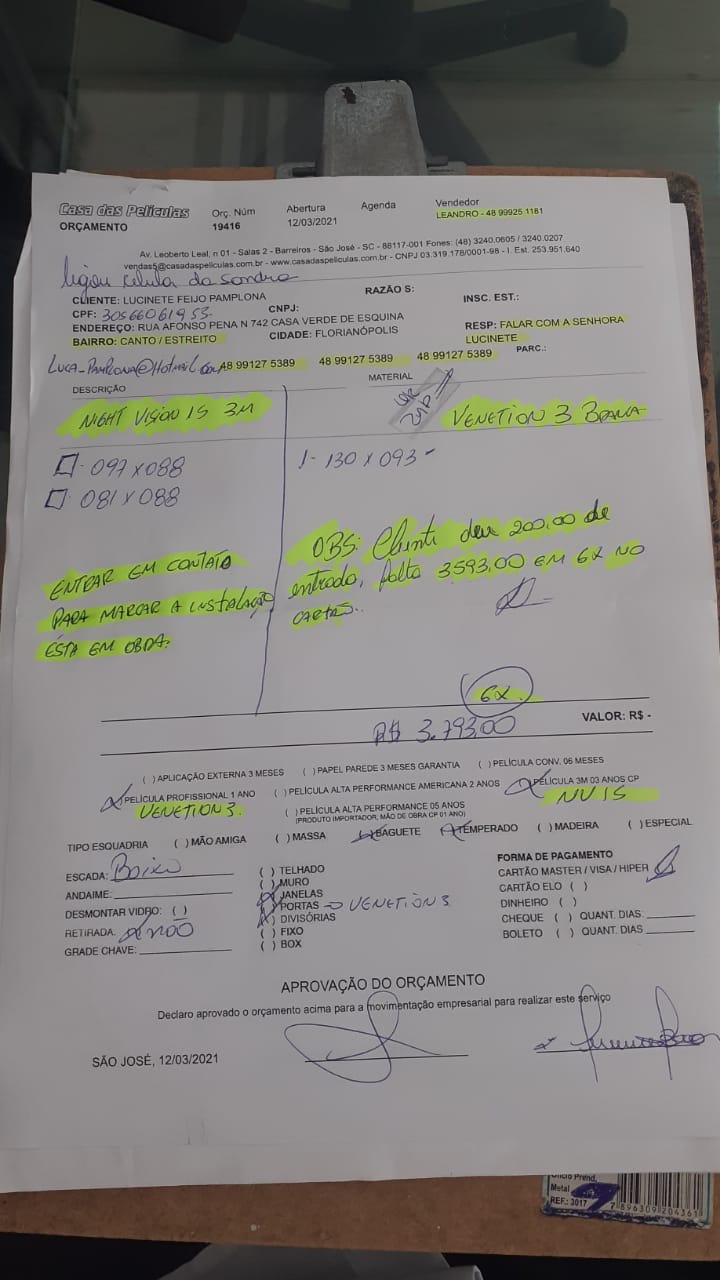 Casa das Películas
ORÇAMENTO
Orç. Núm
19416
Abertura
12/03/2021
Agenda
Vendedor
LEANDRO - 48 99925 1181
Av. Leoberto Leal, n 01 - Salas 2 - Barreiros - São José - SC - 88117-001 Fones: (48) 3240.0605 / 3240.0207
vendas5@casadaspeliculas.com.br - www.casadaspeliculas.com.br - CNPJ 03.319.178/0001-98 - I. Est. 253.951.640
ligou celula da sondra
CLIENTE: LUCINETE FEIJO PAMPLONA
RAZÃO S:
INSC. EST.:
CPF: 30566061953
CNPJ:
ENDEREÇO: RUA AFONSO PENA N 742 CASA VERDE DE ESQUINA
BAIRRO: CANTO / ESTREITO
CIDADE: FLORIANÓPOLIS
RESP: FALAR COM A SENHORA
LUCINETE
LUCA_PAMPLONA@HOTMAIL.COM 48 99127 5389 48 99127 5389 48 99127 5389 PARC.:
DESCRIÇÃO
MATERIAL
NIGHT VISION 15 3M
VENETION 3
097 x 088
081 x 088
1- 130 x 093
OBS: Cliente deu 200,00 de
entrada, falta 3593,00 EM 6X NO
CARTÃO..
ENTRAR EM CONTATO
PARA MARCAR A INSTALAÇÃO
ÉSTA EM OBRA.
6X
R$ 3.793,00
VALOR: R$ -
( ) APLICAÇÃO EXTERNA 3 MESES ( ) PAPEL PAREDE 3 MESES GARANTIA ( ) PELÍCULA CONV. 06 MESES
(X) PELÍCULA PROFISSIONAL 1 ANO ( ) PELÍCULA ALTA PERFORMANCE AMERICANA 2 ANOS (X) PELÍCULA 3M 03 ANOS CP
VENETION 3.
( ) PELÍCULA ALTA PERFORMANCE 05 ANOS
(PRODUTO IMPORTADOR, MÃO DE OBRA CP 01 ANO)
NV 15
TIPO ESQUADRIA ( ) MÃO AMIGA ( ) MASSA (X) BAGUETE (X) TEMPERADO ( ) MADEIRA ( ) ESPECIAL
ESCADA: Baixa
ANDAIME:
DESMONTAR VIDRO: ( )
RETIRADA: NÃO
GRADE CHAVE:
( ) TELHADO
( ) MURO
(X) JANELAS
(X) PORTAS → VENETION 3
(X) DIVISÓRIAS
( ) FIXO
( ) BOX
FORMA DE PAGAMENTO
CARTÃO MASTER / VISA / HIPER
CARTÃO ELO ( )
DINHEIRO ( )
CHEQUE ( ) QUANT. DIAS:
BOLETO ( ) QUANT. DIAS
APROVAÇÃO DO ORÇAMENTO
Declaro aprovado o orçamento acima para a movimentação empresarial para realizar este serviço
SÃO JOSÉ, 12/03/2021
Prend.
Metal
REF.: 3017
7 896309 204361